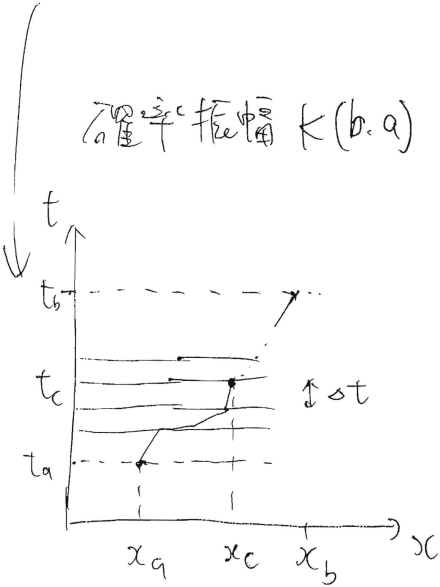 確率振幅 K(b.a)
t
t_b
t_c
Δt
t_a
x_a x_c x_b x